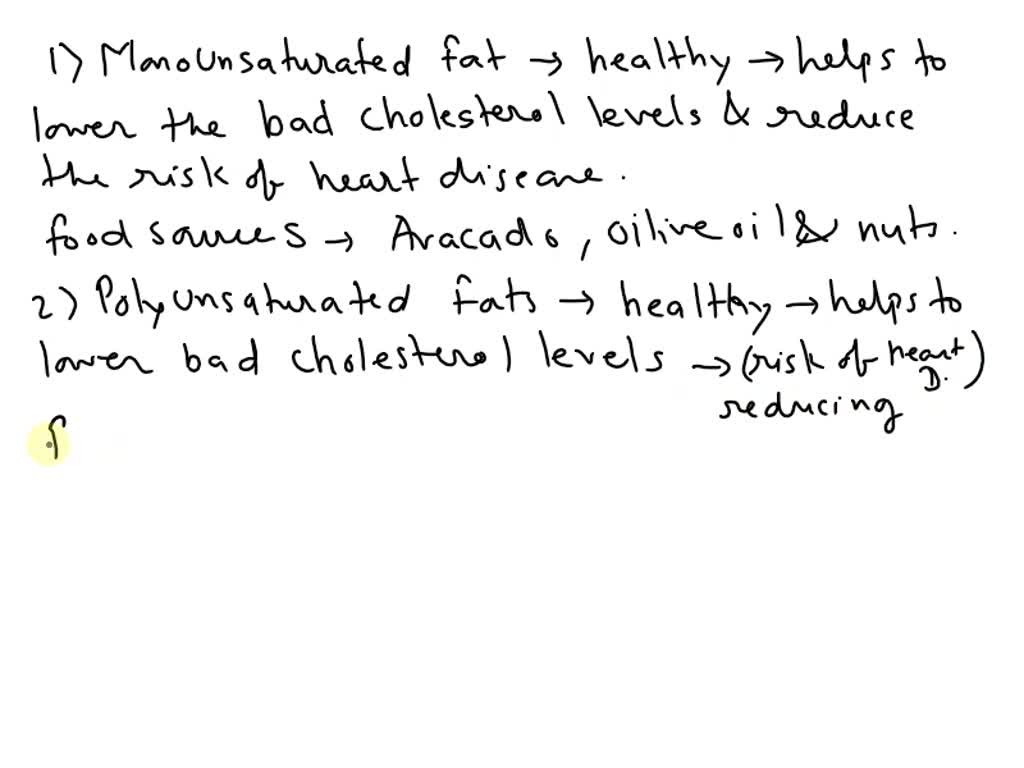 1) Monounsaturated fat → healthy → helps to
lower the bad cholesterol levels & reduce
the risk of heart disease.
food sources → Avacado, oilive oil & nuts.
2) Polyunsaturated fats → healthy → helps to
lower bad cholesterol levels → (risk of heart D.)
reducing
f